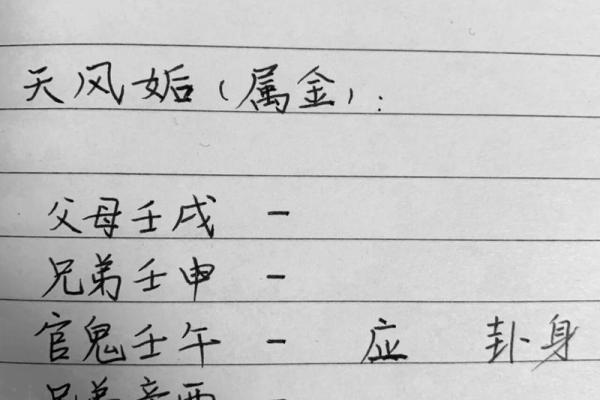 天风姤（属金）：
父母壬戌 -
兄弟壬申 -
官鬼壬午 - 应 卦身
兄弟辛酉 -